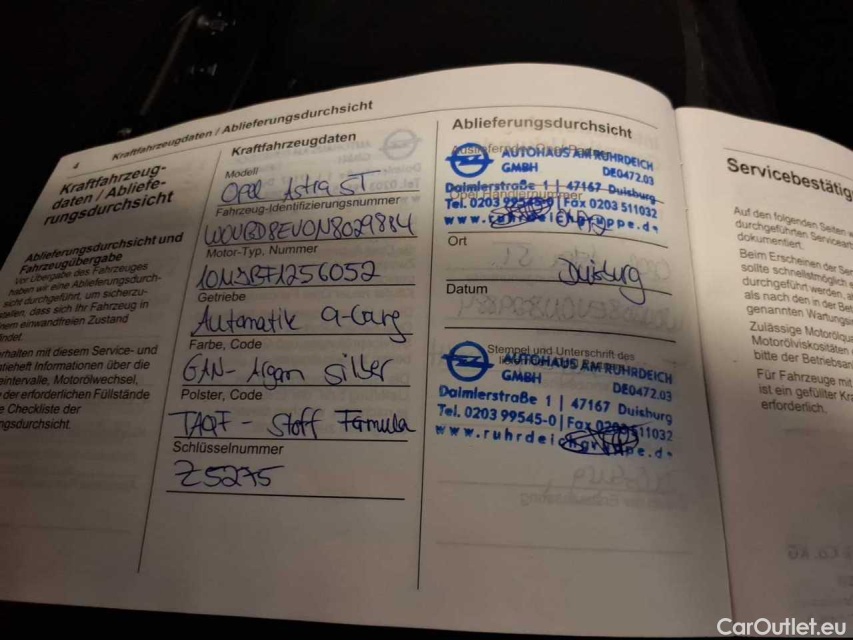 4
Kraftfahrzeugdaten / Ablieferungsdurchsicht
Kraftfahrzeug-
daten / Abliefe-
rungsdurchsicht
Ablieferungsdurchsicht und
Fahrzeugübergabe
Vor Übergabe des Fahrzeuges
haben wir eine Ablieferungsdurch-
sicht durchgeführt, um sicherzu-
stellen, dass sich Ihr Fahrzeug in
einem einwandfreien Zustand
findet.
erhalten mit diesem Service- und
Informationen über die
intervalle, Motorölwechsel,
der erforderlichen Füllstände
Checkliste der
ngsdurchsicht.
Kraftfahrzeugdaten
Modell
Opel Astra ST
Fahrzeug-Identifizierungsnummer
W0VBD8EV0N8029884
Motor-Typ, Nummer
Getriebe
Automatik 9-Gang
Farbe, Code
GAN- Argon silber
Polster, Code
TAQF - Stoff Formula
Schlüsselnummer
Z5275
Ablieferungsdurchsicht
AUTOHAUS AM RUHRDEICH
GMBH DE0472.03
Daimlerstraße 1 | 47167 Duisburg
Tel. 0203 99545-0 | Fax 0203 511032
Ort
Duisburg
Datum
Stempel und Unterschrift des
AUTOHAUS AM RUHRDEICH
GMBH DE0472.03
Daimlerstraße 1 | 47167 Duisburg
Tel. 0203 99545-0 | Fax 0203 511032
www.ruhrdeichgruppe.de
Servicebestätig
Auf den folgenden Seiten w
durchgeführten Servicearb
dokumentiert.
Beim Erscheinen der Ser
sollte schnellstmöglich e
durchgeführt werden, a
als nach den in der Bet
genannten Wartungsin
Zulässige Motorölqu
Motorölviskositäten
bitte der Betriebsan
Für Fahrzeuge mit
ist ein gefüllter Kra
erforderlich.
CarOutlet.eu